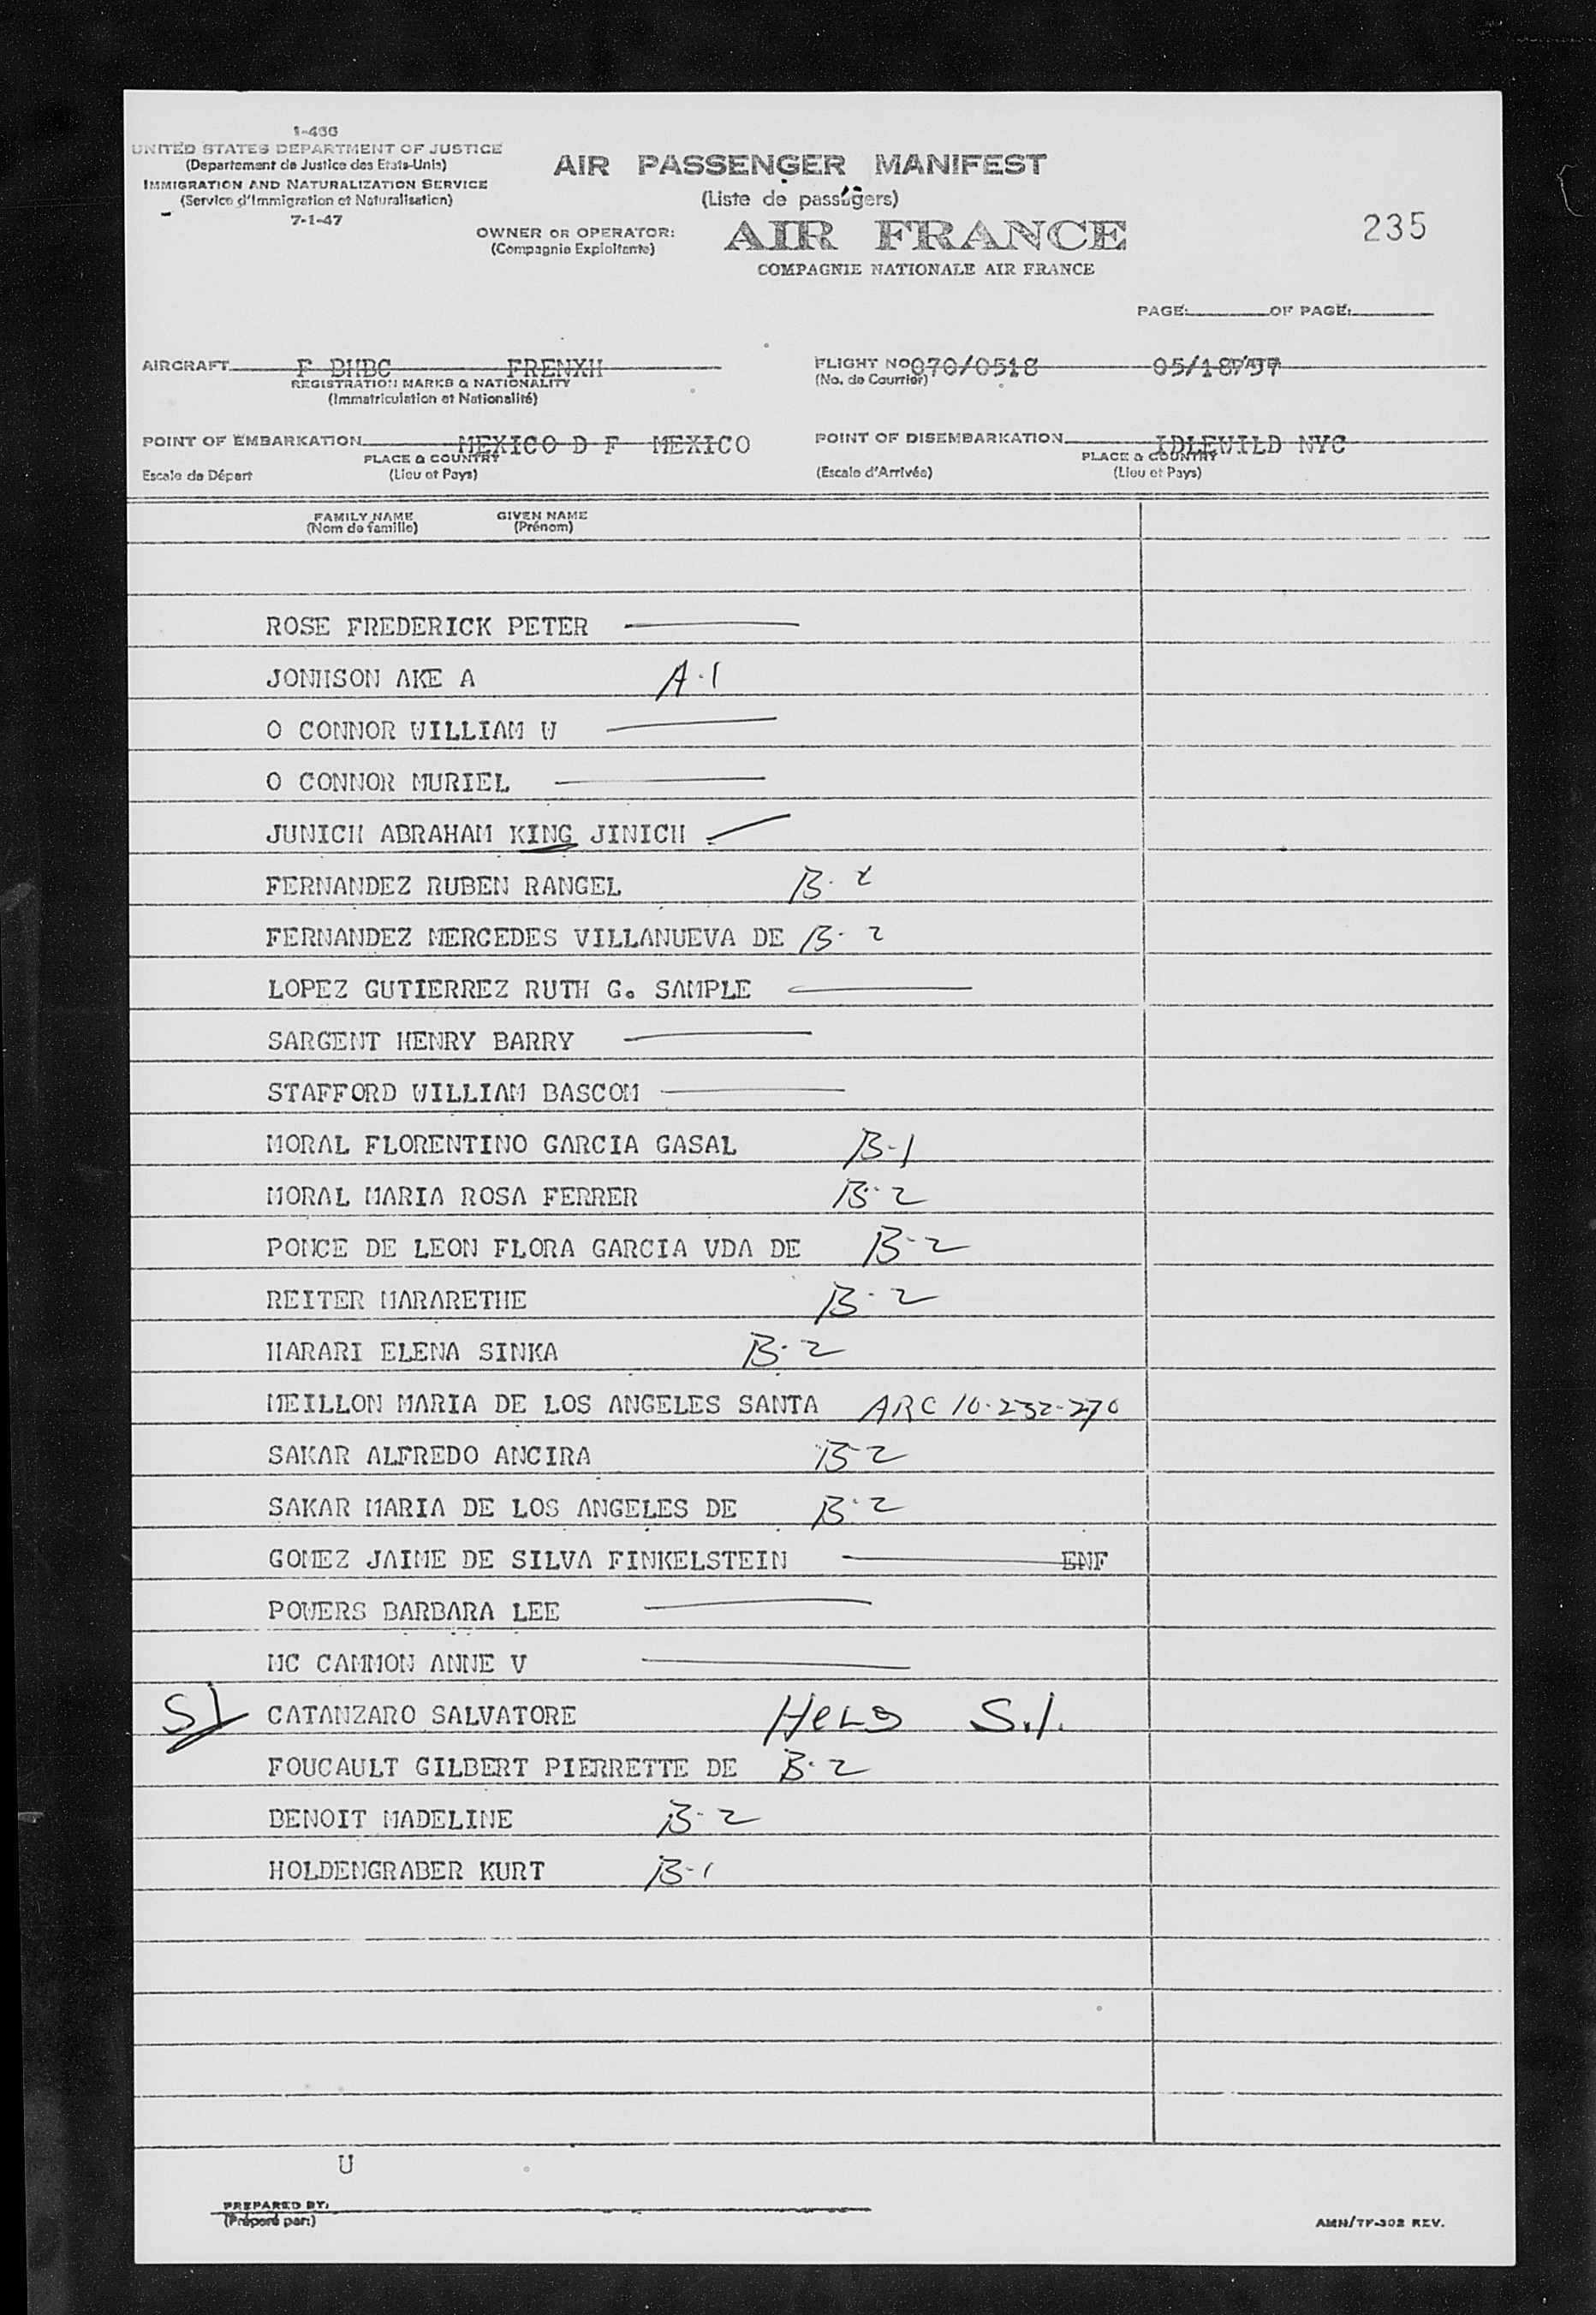 1-466
UNITED STATES DEPARTMENT OF JUSTICE
(Departement de Justice des Etats-Unis)
IMMIGRATION AND NATURALIZATION SERVICE
(Service d'Immigration et Naturalisation)
7-1-47
AIR PASSENGER MANIFEST
(Liste de passagers)
OWNER OR OPERATOR:
(Compagnie Exploitante)
AIR FRANCE
COMPAGNIE NATIONALE AIR FRANCE
235
PAGE: OF PAGE:
AIRCRAFT F BHBC FRENXH
REGISTRATION MARKS & NATIONALITY
(Immatriculation et Nationalité)
FLIGHT NO 070/0518 05/18/57
(No. de Courrier)
POINT OF EMBARKATION MEXICO D F MEXICO
PLACE & COUNTRY
Escale de Départ (Lieu et Pays)
POINT OF DISEMBARKATION IDLEWILD NYC
PLACE & COUNTRY
(Escale d'Arrivée) (Lieu et Pays)
FAMILY NAME GIVEN NAME
(Nom de famille) (Prénom)
ROSE FREDERICK PETER
JONHSON AKE A A-1
O CONNOR WILLIAM W
O CONNOR MURIEL
JUNICH ABRAHAM KING JINICH
FERNANDEZ RUBEN RANGEL B-2
FERNANDEZ MERCEDES VILLANUEVA DE B-2
LOPEZ GUTIERREZ RUTH G. SAMPLE
SARGENT HENRY BARRY
STAFFORD WILLIAM BASCOM
MORAL FLORENTINO GARCIA GASAL B-1
MORAL MARIA ROSA FERRER B-2
PONCE DE LEON FLORA GARCIA VDA DE B-2
REITER MARARETHE B-2
HARARI ELENA SINKA B-2
MEILLON MARIA DE LOS ANGELES SANTA ARC 10-232-270
SAKAR ALFREDO ANCIRA B-2
SAKAR MARIA DE LOS ANGELES DE B-2
GOMEZ JAIME DE SILVA FINKELSTEIN ENF
POWERS BARBARA LEE
MC CAMMON ANNE V
SI CATANZARO SALVATORE HELD S.I.
FOUCAULT GILBERT PIERRETTE DE B-2
BENOIT MADELINE B-2
HOLDENGRABER KURT B-1
U
PREPARED BY:
(Préparé par:)
AMN/TF-302 REV.